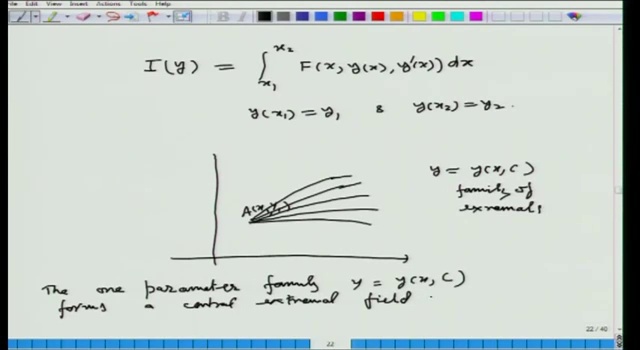 File Edit View Insert Actions Tools Help
I(y) = ∫_{x₁}^{x₂} F(x, y(x), y'(x)) dx
y(x₁) = y₁ & y(x₂) = y₂.
y = y(x, C)
family of
exremals
A(x₁,y₁)
The one parameter family y = y(x, C)
forms a central extremal field.
22 / 40
22